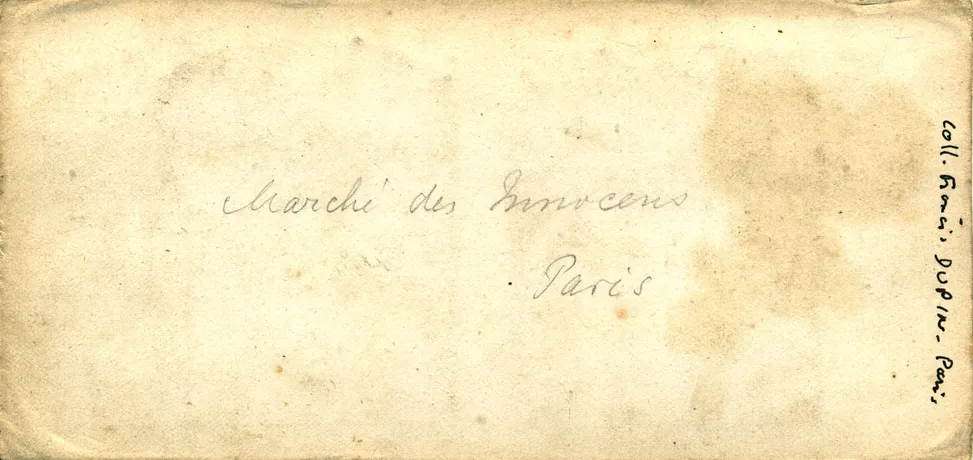 Marché des Innocens
Paris
Coll. Francis DUPIN - Paris